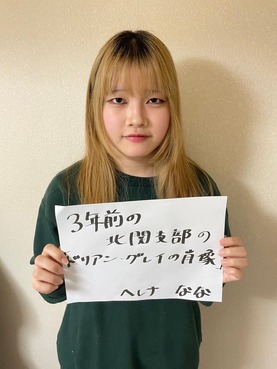 3年前の
北関支部の
「ドリアン・グレイの肖像」
ヘレナ なな